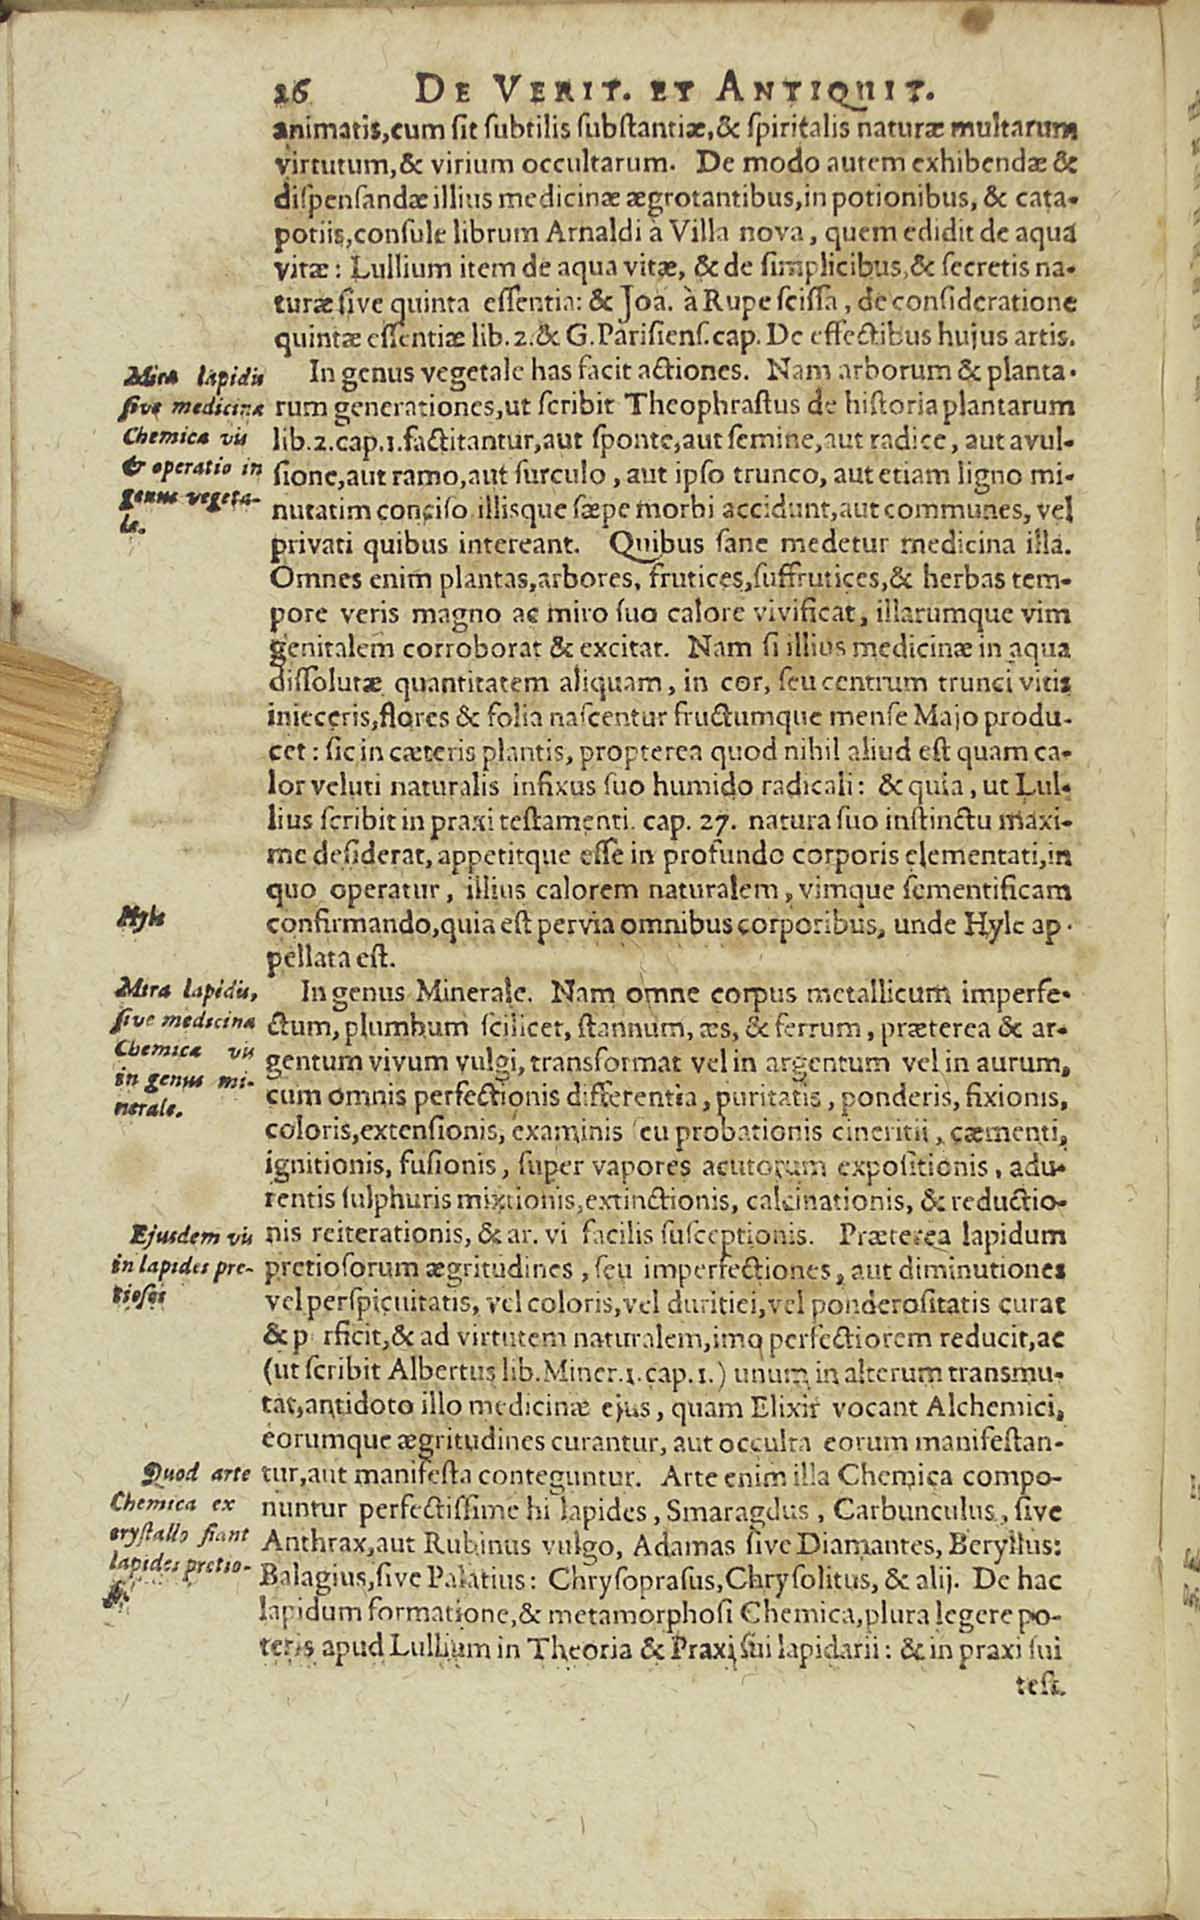 26 DE VERIT. ET ANTIQUIT.
animatis, cum sit subtilis substantiæ, & spiritalis naturæ multarum
virtutum, & virium occultarum. De modo autem exhibendæ &
dispensandæ illius medicinæ ægrotantibus, in potionibus, & cata-
potiis, consule librum Arnaldi à Villa nova, quem edidit de aqua
vitæ: Lullium item de aqua vitæ, & de simplicibus, & secretis na-
turæ sive quinta essentia: & Joa. à Rupe scissa, de consideratione
quintæ essentiæ lib. 2. & G. Parisiens. cap. De effectibus hujus artis.
Mira lapidis
sive medicinæ
Chemicæ vis
& operatio in
genus vegeta-
le.
In genus vegetale has facit actiones. Nam arborum & planta-
rum generationes, ut scribit Theophrastus de historia plantarum
lib. 2. cap. 1. factitantur, aut sponte, aut semine, aut radice, aut avul-
sione, aut ramo, aut surculo, aut ipso trunco, aut etiam ligno mi-
nutatim conciso illisque sæpe morbi accidunt, aut communes, vel
privati quibus intereant. Quibus sane medetur medicina illa.
Omnes enim plantas, arbores, frutices, suffrutices, & herbas tem-
pore veris magno ac miro suo calore vivificat, illarumque vim
genitalem corroborat & excitat. Nam si illius medicinæ in aqua
dissolutæ quantitatem aliquam, in cor, seu centrum trunci vitis
injeceris, flores & folia nascentur fructumque mense Majo produ-
cet: sic in cæteris plantis, propterea quod nihil aliud est quam ca-
lor veluti naturalis infixus suo humido radicali: & quia, ut Lul-
lius scribit in praxi testamenti. cap. 27. natura suo instinctu maxi-
me desiderat, appetitque esse in profundo corporis elementati, in
quo operatur, illius calorem naturalem, vimque sementificam
Hyle
confirmando, quia est pervia omnibus corporibus, unde Hyle ap-
pellata est.
Mira lapidis,
sive medicinæ
Chemicæ vis
in genus mi-
nerale.
In genus Minerale. Nam omne corpus metallicum imperfe-
ctum, plumbum scilicet, stannum, æs, & ferrum, præterea & ar-
gentum vivum vulgi, transformat vel in argentum vel in aurum,
cum omnis perfectionis differentia, puritatis, ponderis, fixionis,
coloris, extensionis, examinis eu probationis cineritii, cæmenti,
ignitionis, fusionis, super vapores acutorum expositionis, adu-
rentis sulphuris mixtionis, extinctionis, calcinationis, & reductio-
Ejusdem vis
in lapides pre-
tiosos
nis reiterationis, & ar. vi facilis susceptionis. Præterea lapidum
pretiosorum ægritudines, seu imperfectiones, aut diminutiones
vel perspicuitatis, vel coloris, vel duritiei, vel ponderositatis curat
& p rficit, & ad virtutem naturalem, imo perfectiorem reducit, ac
(ut scribit Albertus lib. Miner. 1. cap. 1.) unum in alterum transmu-
tat, antidoto illo medicinæ ejus, quam Elixir vocant Alchemici,
eorumque ægritudines curantur, aut occulta eorum manifestan-
Quod arte
Chemica ex
crystallo fiant
lapides pretio-
si.
tur, aut manifesta conteguntur. Arte enim illa Chemica compo-
nuntur perfectissime hi lapides, Smaragdus, Carbunculus, sive
Anthrax, aut Rubinus vulgo, Adamas sive Diamantes, Beryllus:
Balagius, sive Palatius: Chrysoprasus, Chrysolitus, & alij. De hac
lapidum formatione, & metamorphosi Chemica, plura legere po-
teris apud Lullium in Theoria & Praxi sui lapidarii: & in praxi sui
test.